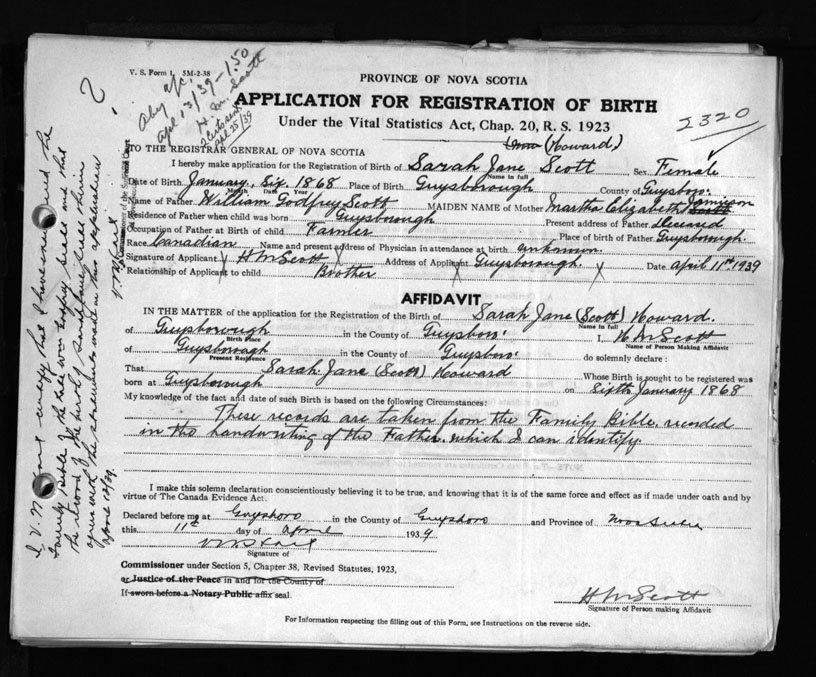 V. S. Form 1. 5M-2-38
apl 13/39 - 1.50
H. M. Scott
apl 25/39
2320
PROVINCE OF NOVA SCOTIA
APPLICATION FOR REGISTRATION OF BIRTH
Under the Vital Statistics Act, Chap. 20, R. S. 1923
TO THE REGISTRAR GENERAL OF NOVA SCOTIA (Howard)
I hereby make application for the Registration of Birth of Sarah Jane Scott Sex Female
Name in full
Date of Birth January, Six. 1868 Place of Birth Guysborough County of Guysboro.
Month Date Year
Name of Father William Godfrey Scott MAIDEN NAME of Mother Martha Elizabeth Scott Jamieson
Residence of Father when child was born Guysborough Present address of Father Deceased
Occupation of Father at Birth of child Farmer Place of birth of Father Guysborough.
Race Canadian Name and present address of Physician in attendance at birth unknown
Signature of Applicant H M Scott Address of Applicant Guysborough. Date April 11th 1939
Relationship of Applicant to child Brother
AFFIDAVIT
IN THE MATTER of the application for the Registration of the Birth of Sarah Jane (Scott) Howard.
Name in full
of Guysborough in the County of Guysboro. I, H M Scott
Birth Place Name of Person Making Affidavit
of Guysborough in the County of Guysboro. do solemnly declare :
Present Residence
That Sarah Jane (Scott) Howard Whose Birth is sought to be registered was
born at Guysborough on Sixth January 1868
My knowledge of the fact and date of such Birth is based on the following Circumstances:
These records are taken from the Family Bible. recorded
in the handwriting of the Father. which I can identify.
I make this solemn declaration conscientiously believing it to be true, and knowing that it is of the same force and effect as if made under oath and by
virtue of The Canada Evidence Act.
Declared before me at Guysboro in the County of Guysboro and Province of Nova Scotia
this 11th day of April 1939
Signature of
Commissioner under Section 5, Chapter 38, Revised Statutes, 1923,
or Justice of the Peace in and for the County of
If sworn before a Notary Public affix seal.
H M Scott
Signature of Person making Affidavit
For Information respecting the filling out of this Form, see Instructions on the reverse side.
certify that I have examined the
Family Bible of the late Wm Godfrey Scott and that
the record of the birth of Sarah Jane Scott therein
agrees with the statements made in this application
April 12/39.